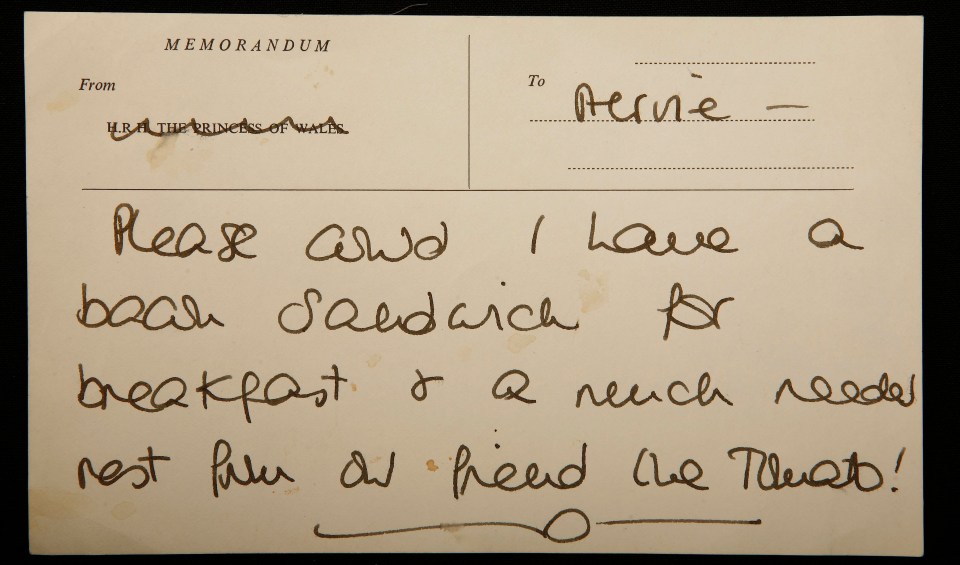 MEMORANDUM
From
To
H.R.H. THE PRINCESS OF WALES
Mervie —
Please could I have a
bacon sandwich for
breakfast & a much needed
rest from our friend the Tomato!